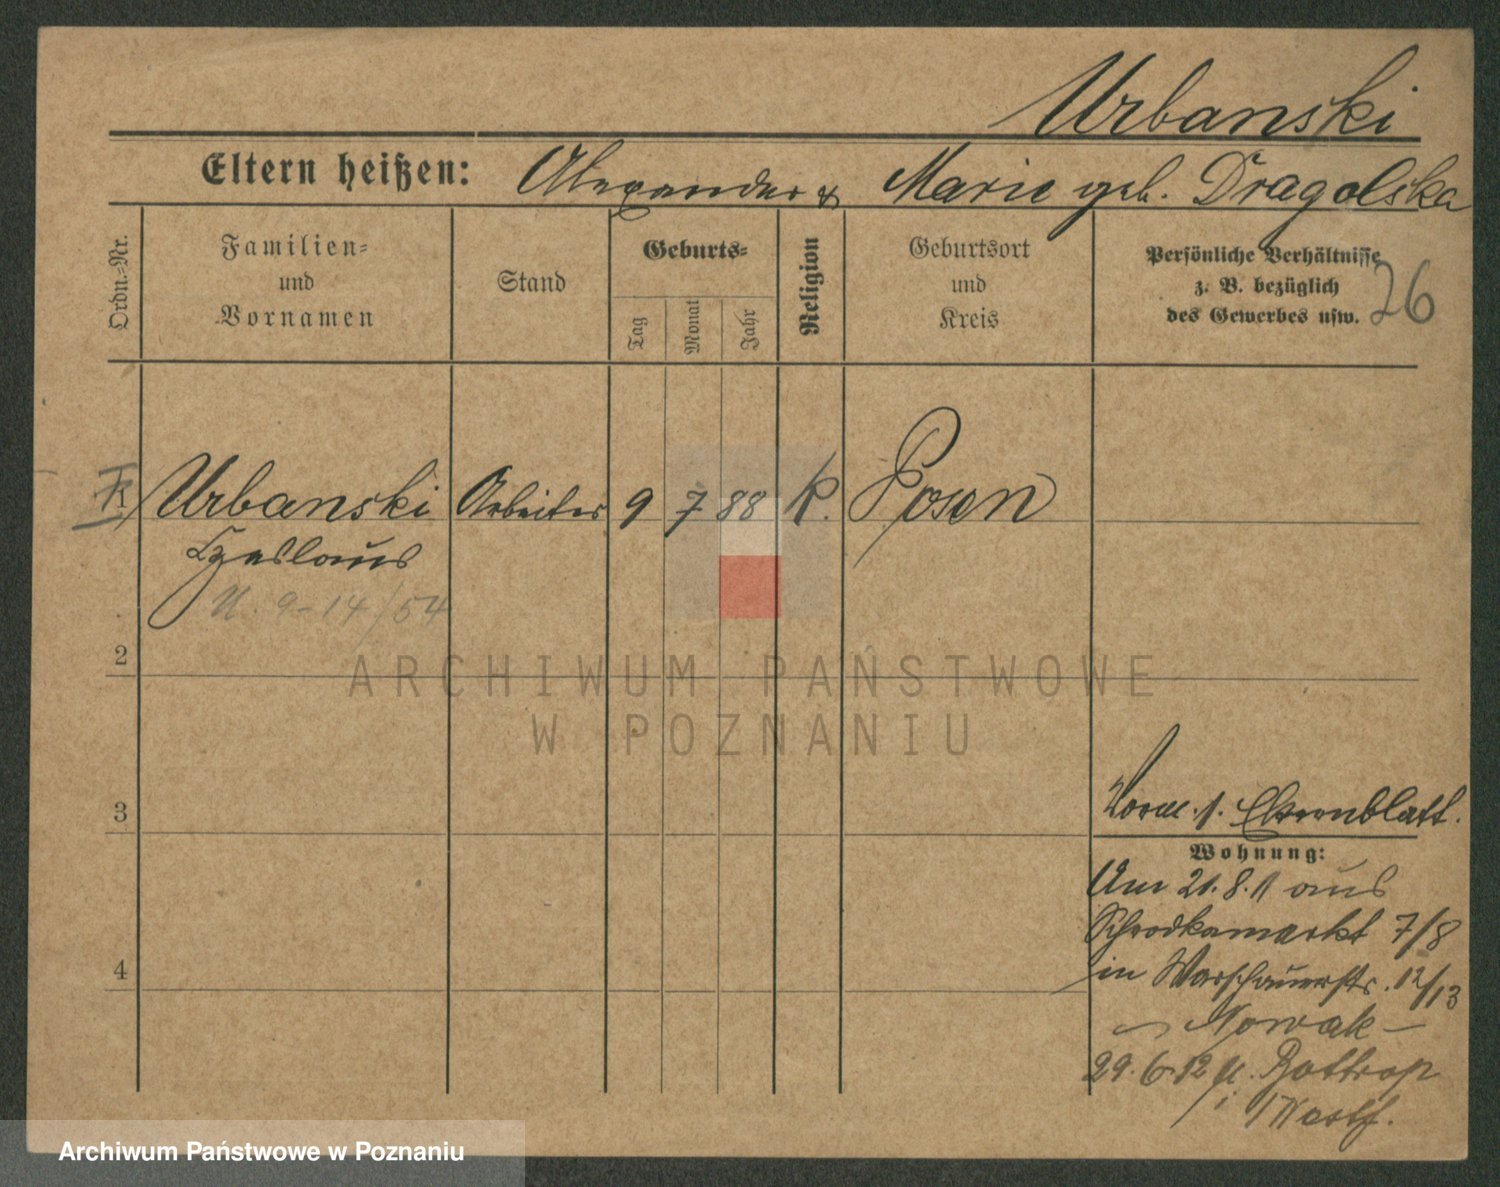 Urbanski
Eltern heißen: Alexander & Marie geb. Dragolska
Ordn.=Nr.
Familien=
und
Vornamen
Stand
Geburts=
Tag
Monat
Jahr
Religion
Geburtsort
und
Kreis
Persönliche Verhältnisse
z. B. bezüglich
des Gewerbes usw.
26
Urbanski Arbeiter 9 7 88 k. Posen
Czeslaus
U. 9-14/54
2
ARCHIWUM PAŃSTWOWE
W POZNANIU
3
4
1. Elternblatt.
Wohnung:
Am 21.8.11 aus
Schrodkamarkt 7/8
in Warschauerstr. 12/13
Nowak
29.6.12 n. Bottrop
i/Westf.
Archiwum Państwowe w Poznaniu